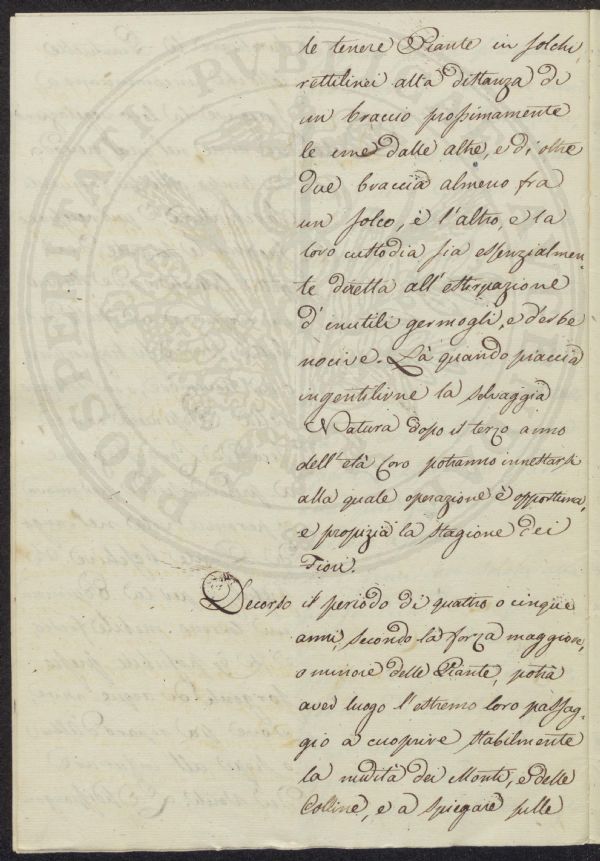 le tenere Piante in solchi
rettilinei alla distanza di
un braccio prossimamente
le une dalle altre, e di oltre
due braccia almeno fra
un solco, e l'altro, e la
loro custodia sia essenzialmen-
te diretta all'estirpazione
d'inutili germogli, e d'erbe
nocive. Là quando piaccia
ingentilirne la selvaggia
Natura dopo il terzo anno
dell'età loro potranno innestarsi
alla quale operazione è opportuna,
e propizia la stagione dei
Fiori.
Decorso il periodo di quattro o cinque
anni, secondo la forza maggiore,
o minore delle Piante, potrà
aver luogo l'estremo loro passag-
gio a cuoprire stabilmente
la nudità dei Monti, e delle
Colline, e a spiegare sulle
PROSPERITATI PUBLICAE